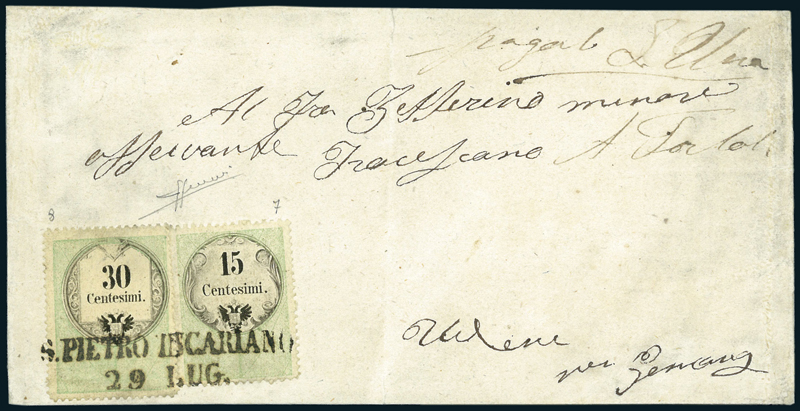 Al Fra Zefferino minore
osservante Francescano A.
8
7
30
Centesimi.
15
Centesimi.
S. PIETRO INCARIANO
29 LUG.
Udene
per Gemona